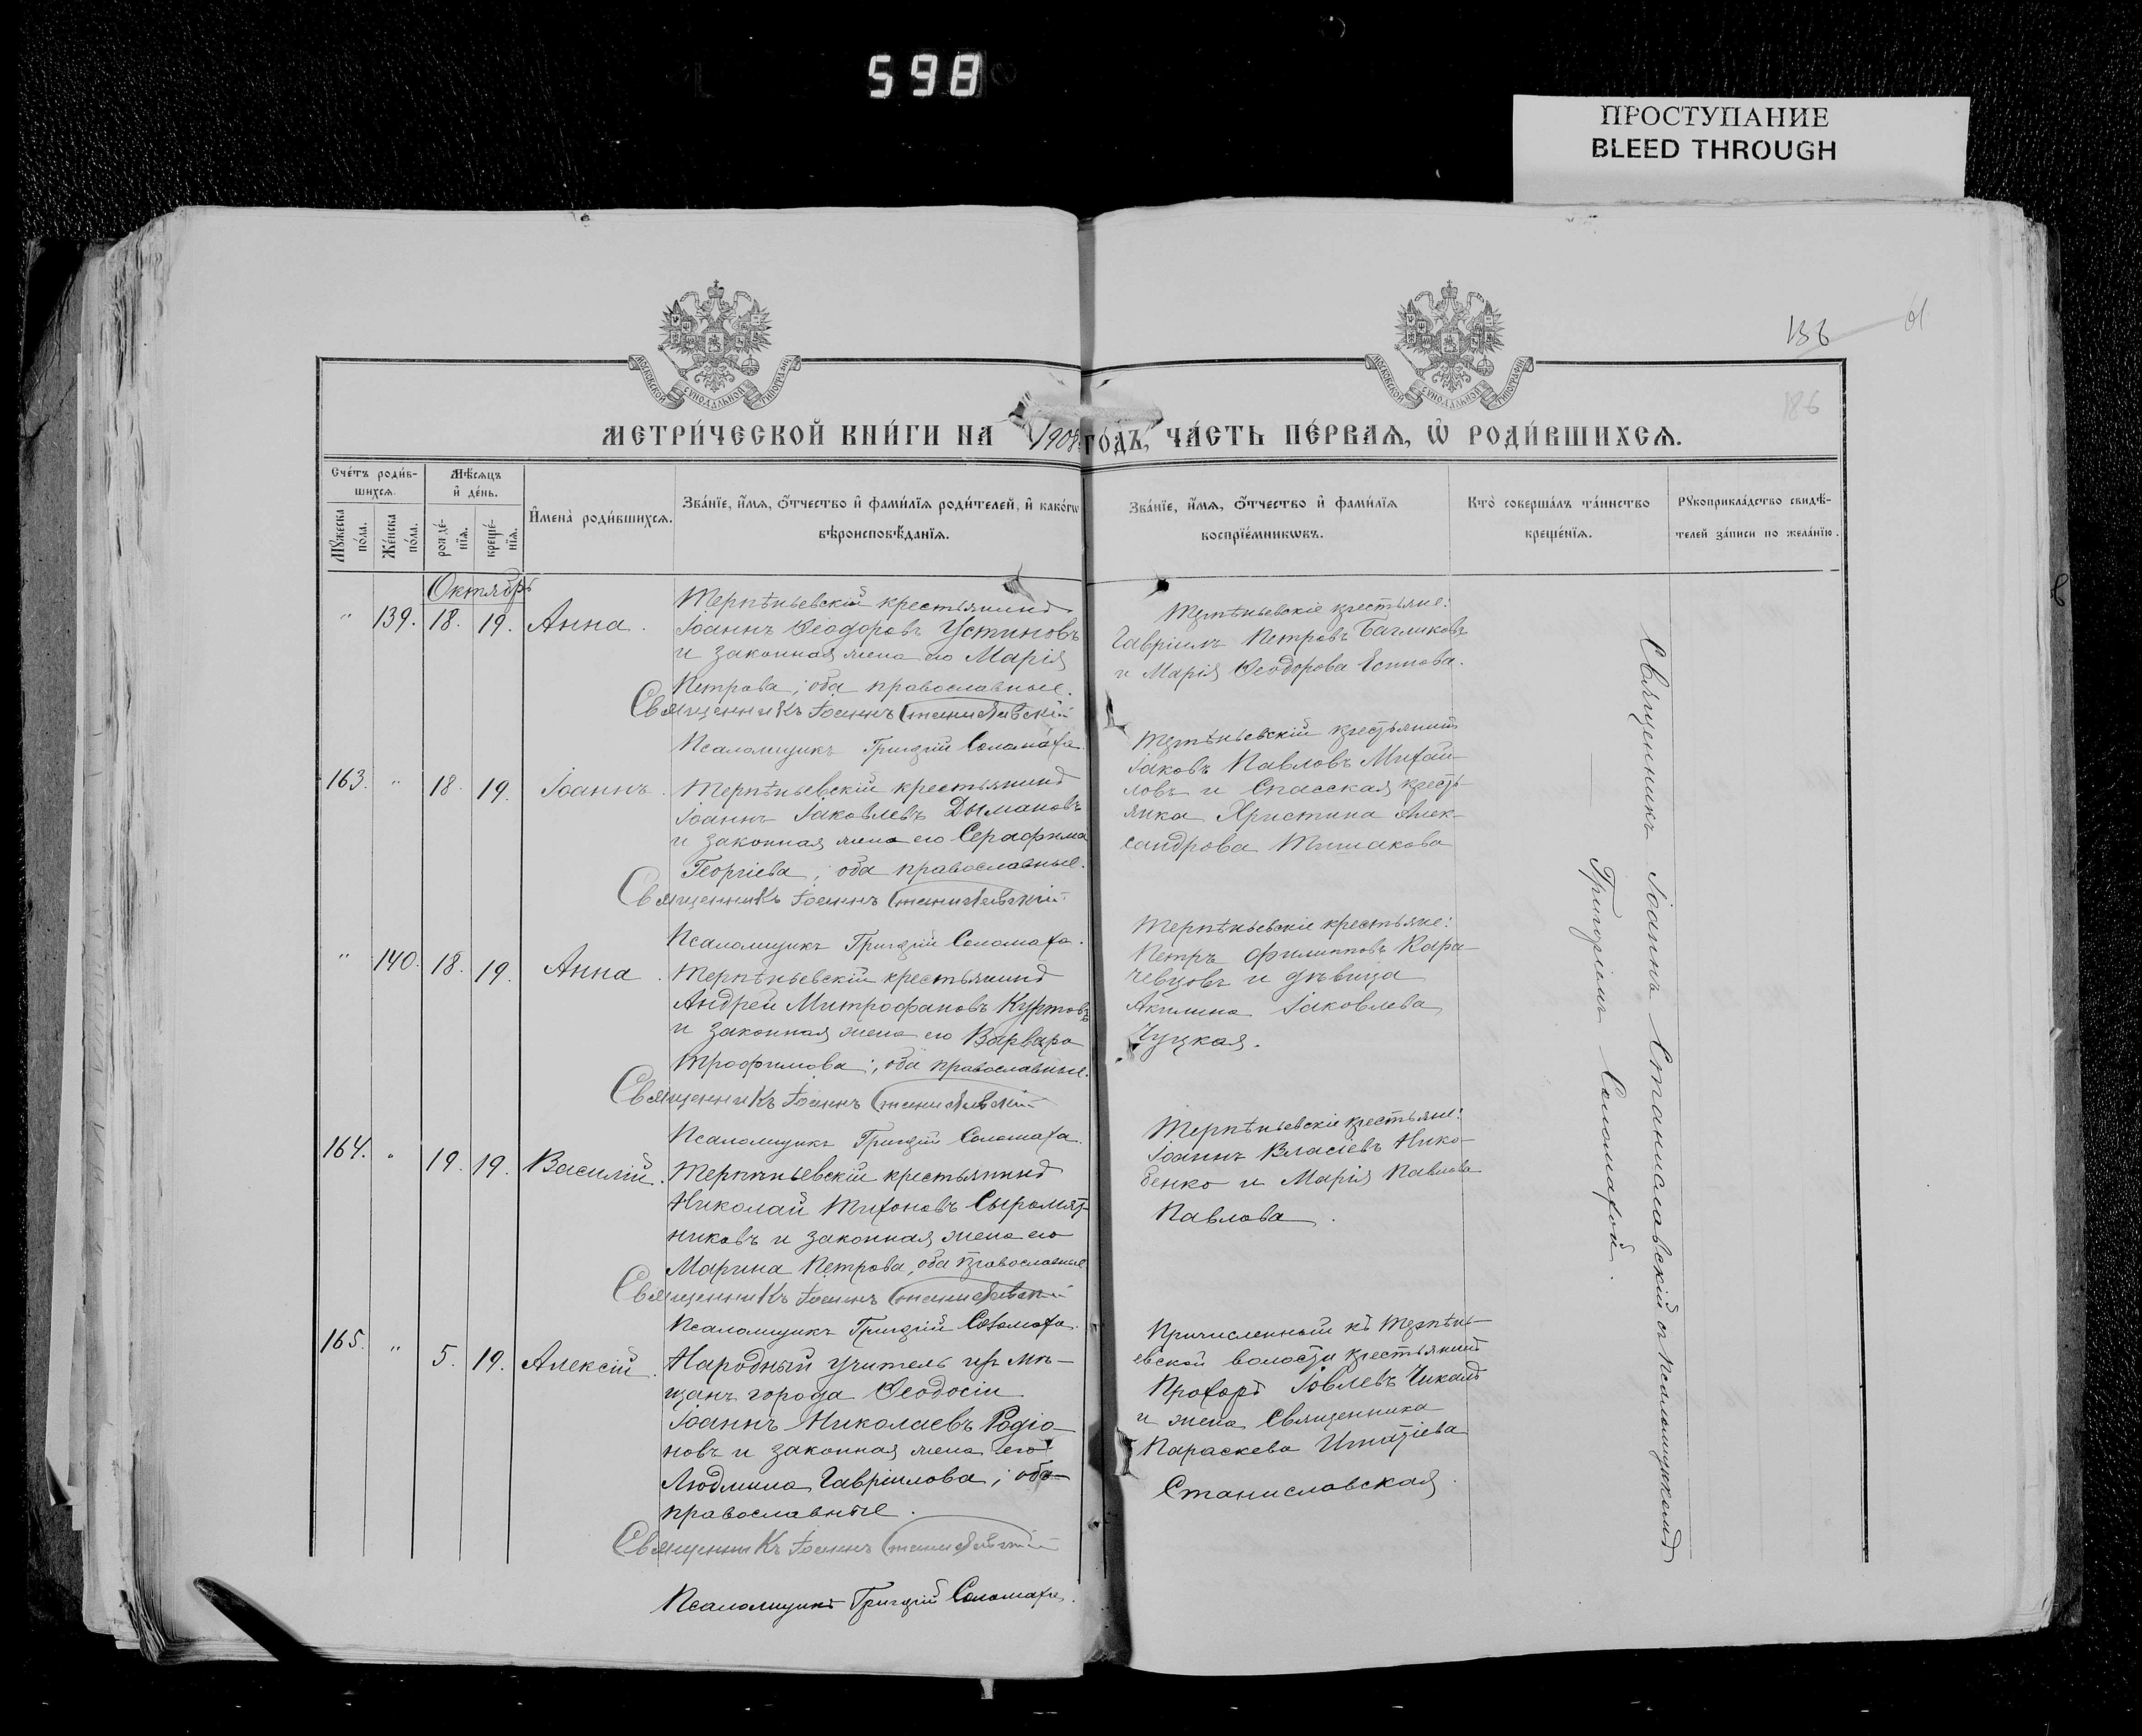 598
ПРОСТУПАНИЕ
BLEED THROUGH
186
186
МОСКОВСКОЙ СѴНОДАЛЬНОЙ ТИПОГРАФІИ
МОСКОВСКОЙ СѴНОДАЛЬНОЙ ТИПОГРАФІИ
МЕТРИ́ЧЕСКОЙ КНИ́ГИ НА 1908 ГО́ДЪ, ЧА́СТЬ ПЕ́РВАѦ, Ѽ РОДИ́ВШИХСѦ.
Сче́тъ роди́в-
шихсѧ.
Мѣ́сѧцъ
и҆ де́нь.
Мꙋ́жеска по́ла.
Же́нска по́ла.
рожде́-
нїѧ.
креще́-
нїѧ.
И҆мена̀ роди́вшихсѧ.
Зва́нїе, и҆́мѧ, ѻ҆́тчество и҆ фами́лїѧ роди́телей, и҆ како́гѡ
вѣроисповѣ́данїѧ.
Зва́нїе, и҆́мѧ, ѻ҆́тчество и҆ фами́лїѧ
воспрїе́мникѡвъ.
Кто̀ соверша́лъ та́инство
креще́нїѧ.
Рꙋкоприкла́дство свидѣ́-
телей за́писи по жела́нїю.
Октябрь
" 139. 18. 19. Анна.
Терпѣньевскій крестьянинъ
Іоаннъ Ѳеодоровъ Устиновъ
и законная жена его Марія
Петрова; оба православные.
Священникъ Іоаннъ Станиславскій
Псаломщикъ Григорій Соломаха.
Терпѣньевскіе крестьяне:
Гавріилъ Петровъ Багликовъ
и Марія Ѳеодорова Есипова.
163. " 18. 19. Іоаннъ.
Терпѣньевскій крестьянинъ
Іоаннъ Іаковлевъ Дымановъ
и законная жена его Серафима
Георгіева; оба православные.
Священникъ Іоаннъ Станиславскій
Псаломщикъ Григорій Соломаха.
Терпѣньевскій крестьянинъ
Іаковъ Павловъ Михай-
ловъ и Спасская кресть-
янка Христина Алек-
сандрова Тишакова
" 140. 18. 19. Анна.
Терпѣньевскій крестьянинъ
Андрей Митрофановъ Куртовъ
и законная жена его Варвара
Трофимова; оба православные.
Священникъ Іоаннъ Станиславскій
Псаломщикъ Григорій Соломаха.
Терпѣньевскіе крестьяне:
Петръ Филипповъ Кара-
чевцовъ и дѣвица
Акилина Іаковлева
Чуцкая.
164. " 19. 19. Василій.
Терпѣньевскій крестьянинъ
Николай Тихоновъ Сыромят-
никовъ и законная жена его
Марина Петрова, оба православные
Священникъ Іоаннъ Станиславскій
Псаломщикъ Григорій Соломаха.
Терпѣньевскіе крестьяне:
Іоаннъ Власіевъ Нико-
бенко и Марія Павлова
Павлова.
165. " 5. 19. Алексій.
Народный учитель изъ мѣ-
щанъ города Ѳеодосіи
Іоаннъ Николаевъ Родіо-
новъ и законная жена его
Людмила Гавріилова; оба
православные.
Священникъ Іоаннъ Станиславскій
Псаломщикъ Григорій Соломаха.
Причисленный къ Терпѣнь-
евской волости крестьянинъ
Прохоръ Іовлевъ Чикалъ
и жена Священника
Параскева Игнатіева
Станиславская.
Священникъ Іоаннъ Станиславскій съ псаломщикомъ
Григоріемъ Соломахой.